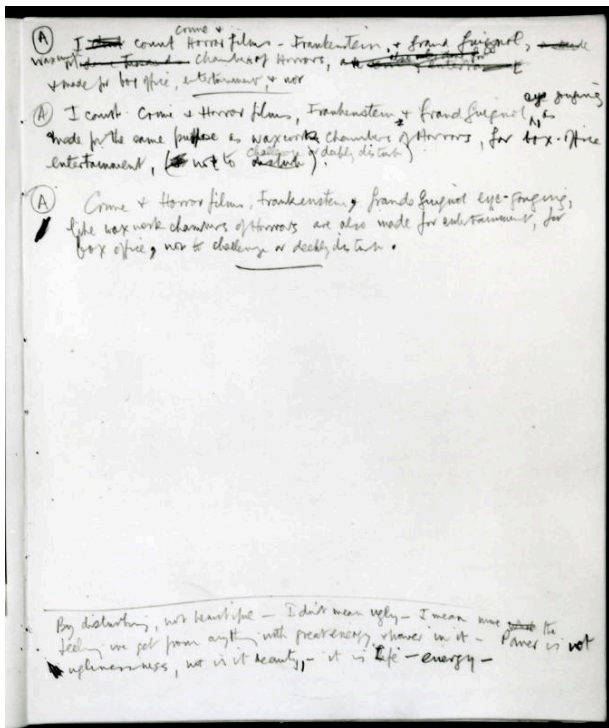 crime &
(A) I count Horror films - Frankenstein, & Grand Guignol,
waxwork Chambers of Horrors,
& made for box office, entertainment, & not
eye gouging
(A) I count Crime & Horror films, Frankenstein & Grand Guignol as
made for the same purpose as waxwork Chambers of Horrors, for box-office
challenge or deeply disturb
entertainment, (not to disturb).
(A) Crime & Horror films, Frankenstein, Grande Guignol eye-gouging,
like waxwork chambers of Horrors are also made for entertainment, for
box office, not to challenge or deeply disturb.
By disturbing, not beautiful - I don't mean ugly - I mean more the
feeling we get from anything with great energy, & power in it - Power is not
uglinessness, nor is it beauty, - it is life - energy -